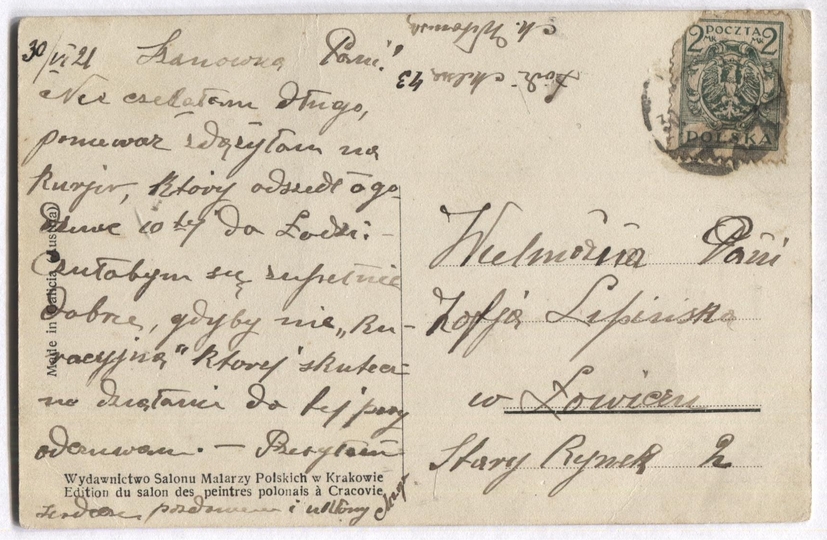 30/VI 21 Szanowna Pani!
Nie czekałam długo,
ponieważ zdążyłam na
kurjer, który odszedł o go-
dzinie 10 tej do Łodzi. –
Czułabym się zupełnie
dobrze, gdyby nie „ku-
racyjna" której skutecz-
ne działanie do tej pory
odczuwam. – Przesyłam
serdeczne pozdrowienia i ukłony
Made in Galicia (Austria)
Wydawnictwo Salonu Malarzy Polskich w Krakowie
Edition du salon des peintres polonais à Cracovie
Łódź 43
2 POCZTA 2
MK MK
POLSKA
Wielmożna Pani
Zofja Lipińska
w Łowiczu
Stary Rynek 2